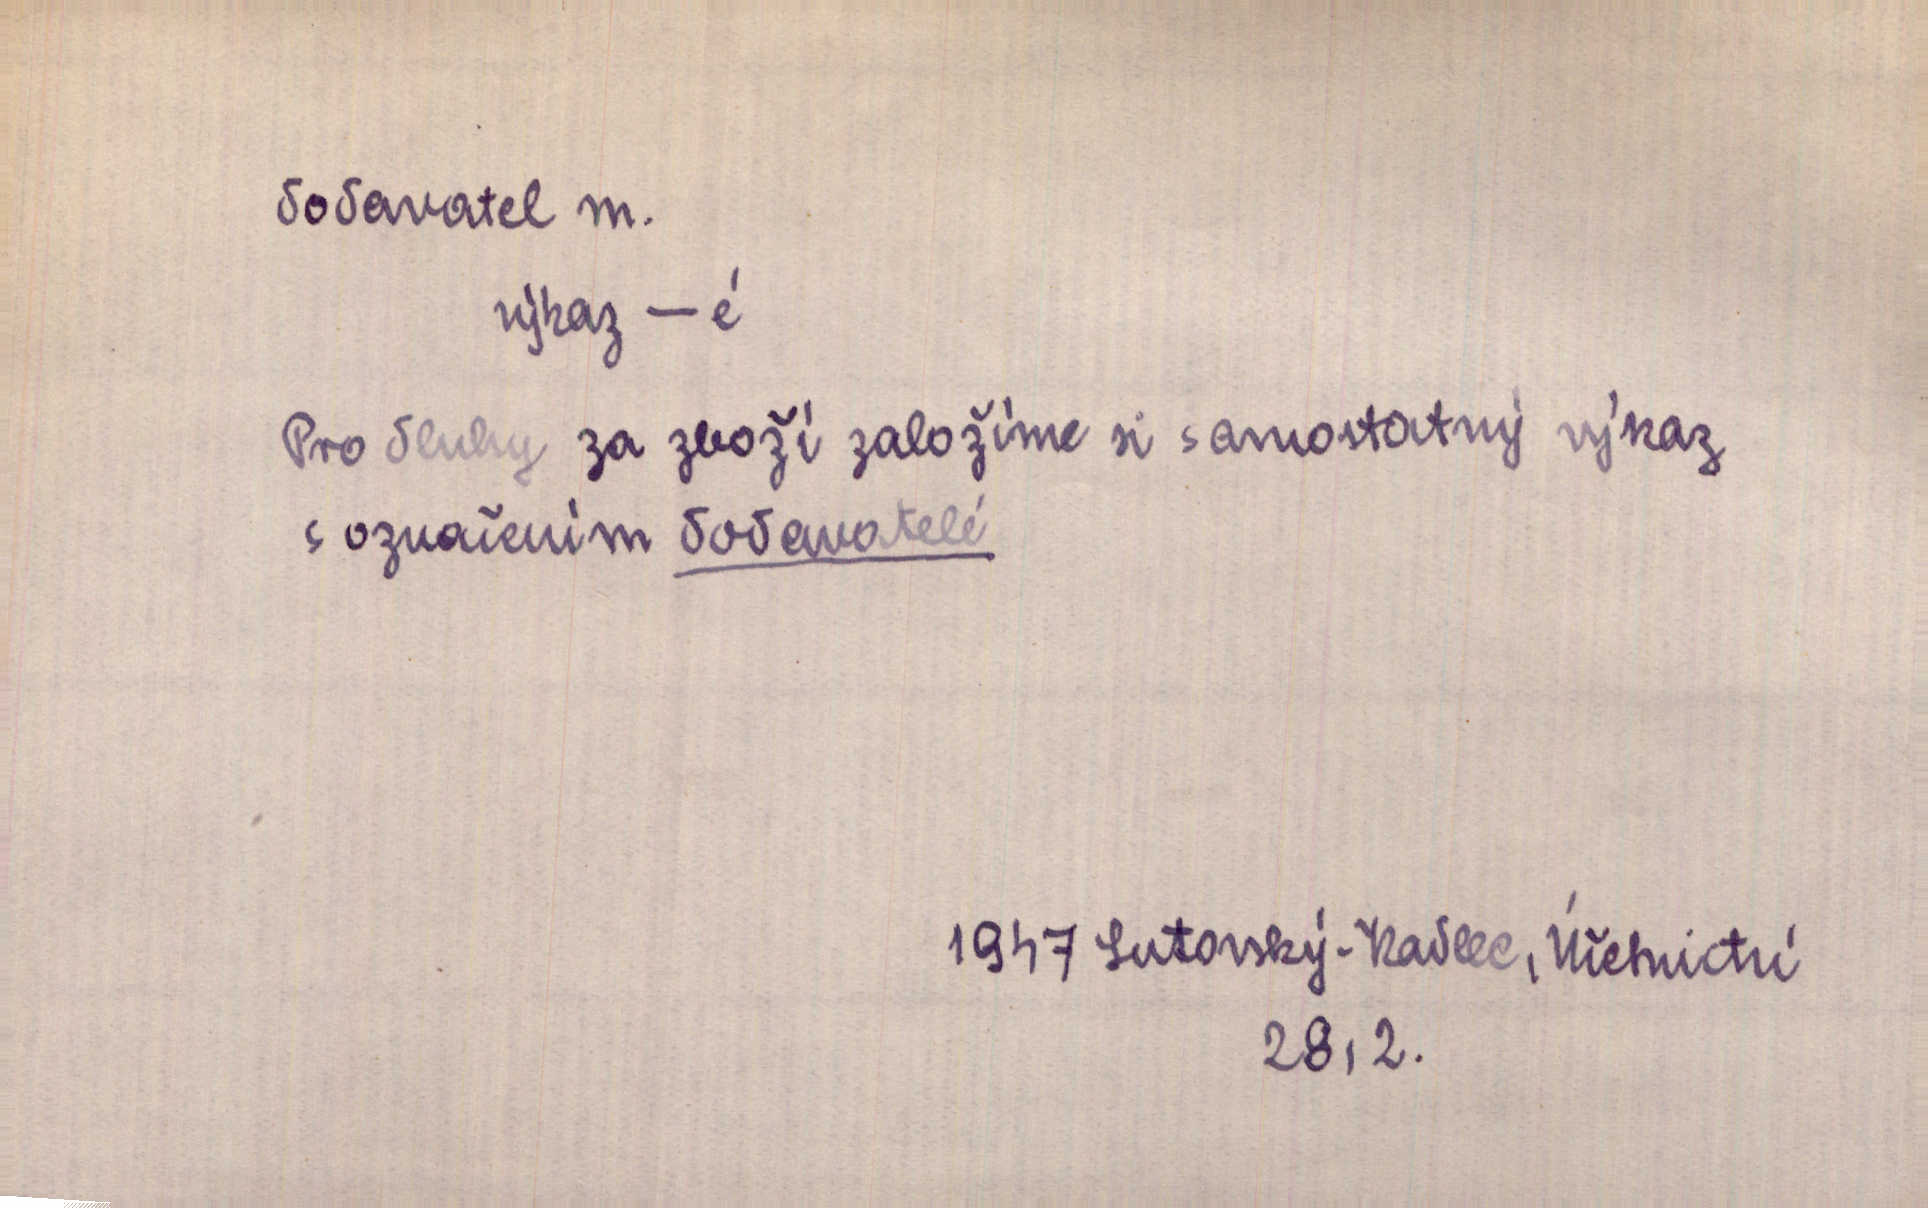 dodavatel m.
výkaz — é
Pro dluhy za zboží založíme si samostatný výkaz
s označením dodavatelé
1947 Lutovský-Kadlec, Účetnictví
28, 2.